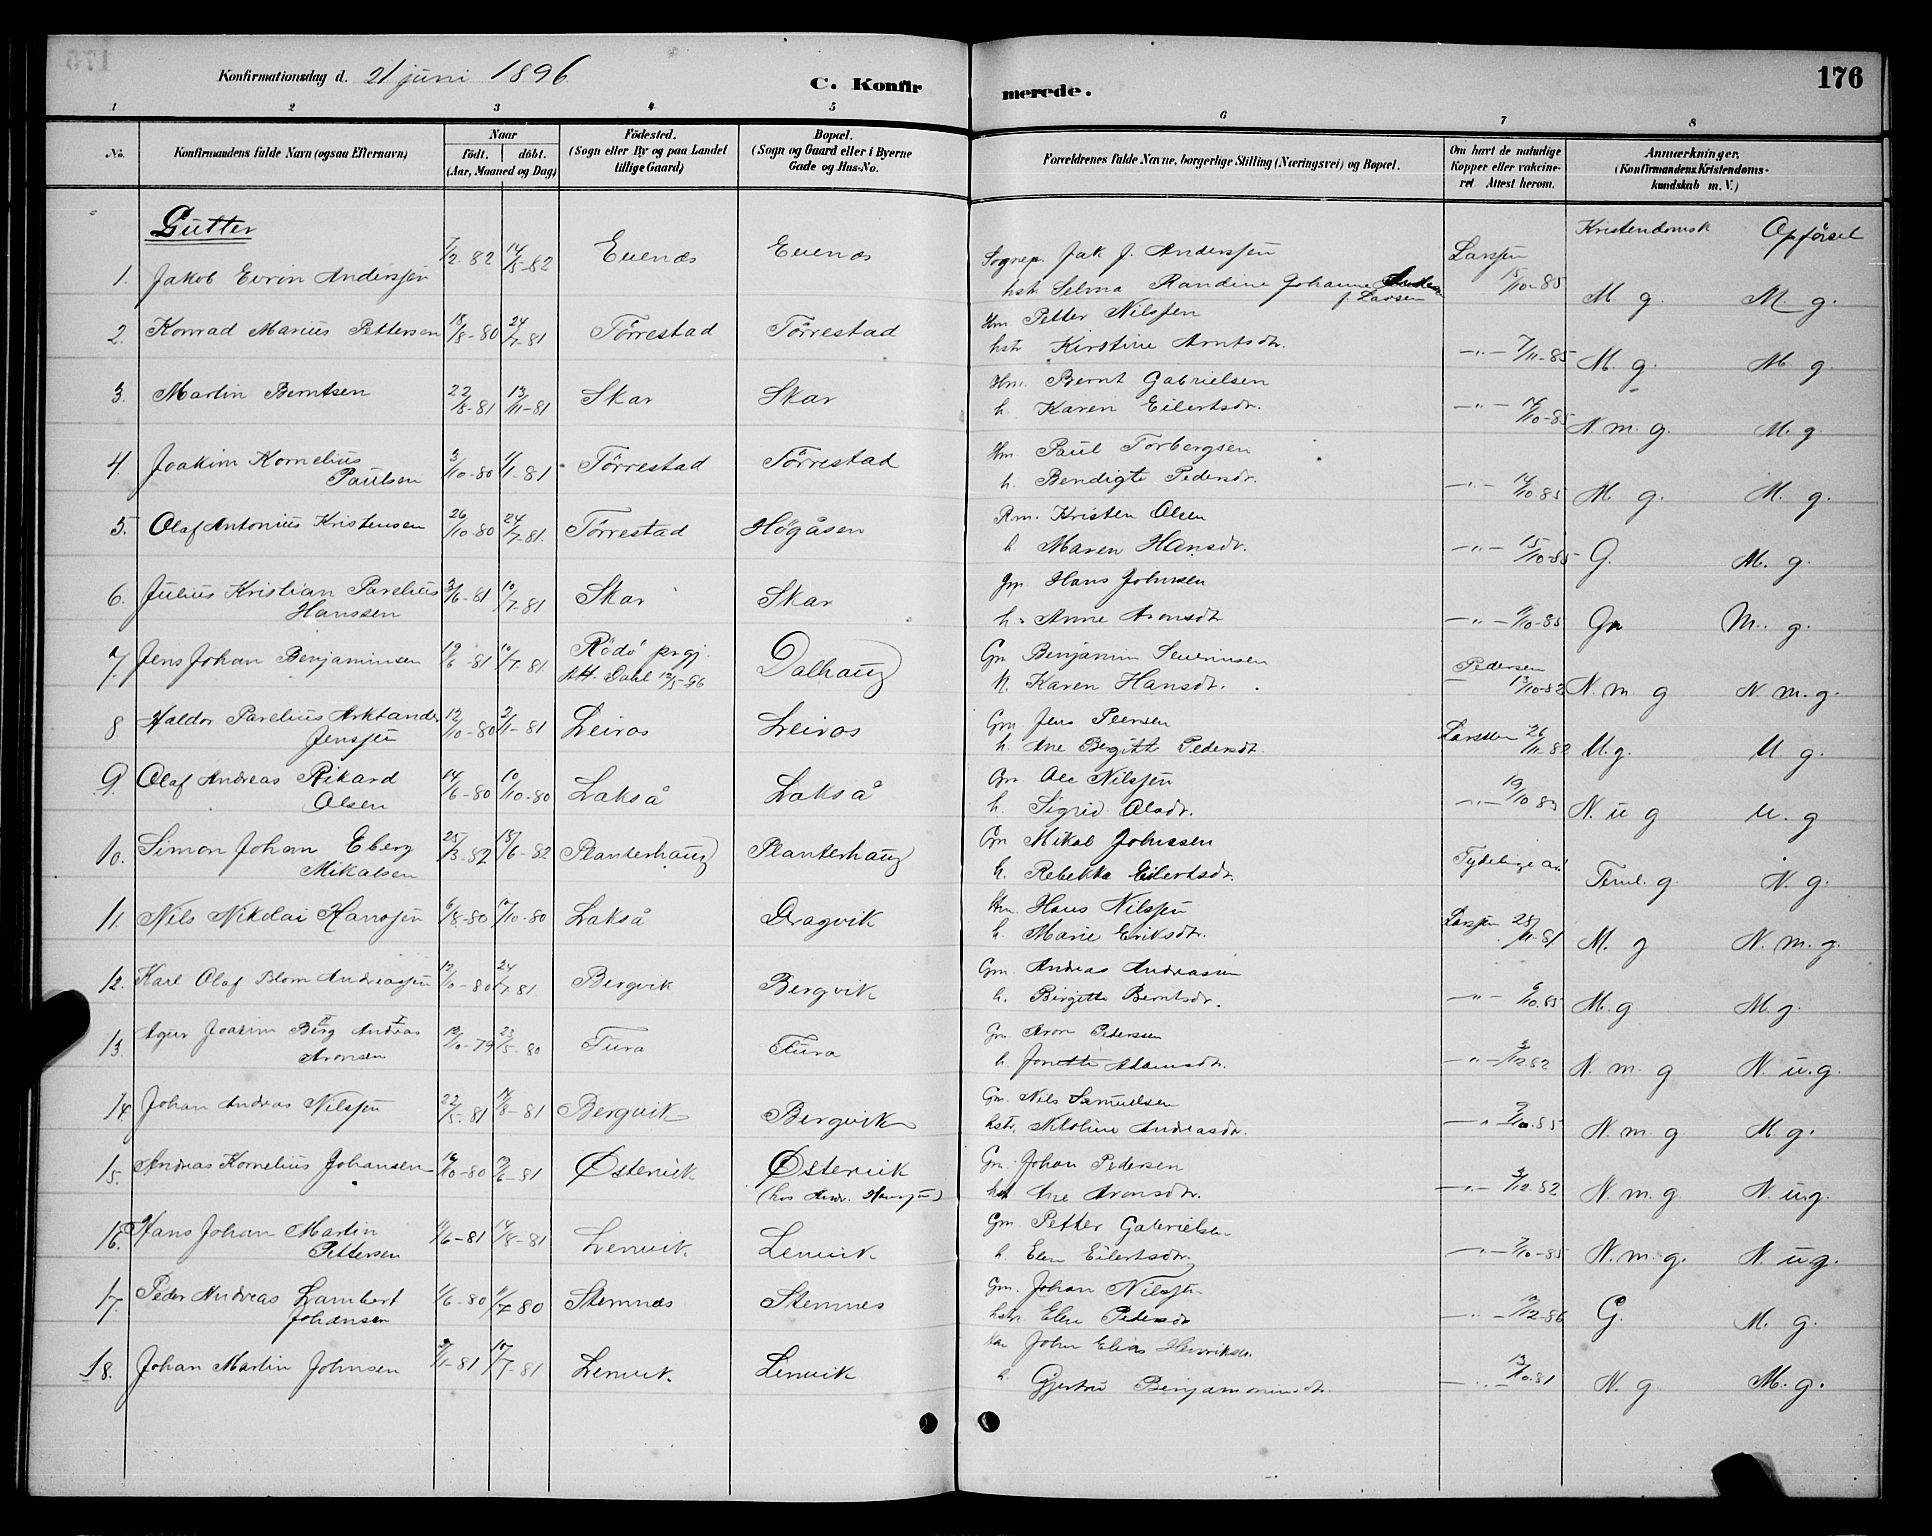 176
Konfirmationsdag d. 21 juni 1896
C. Konfirmerede.
1 2 3 4 5 6 7 8
No. Konfirmandens fulde Navn (ogsaa Efternavn) Naar født. døbt. (Aar, Maaned og Dag) Fødested. (Sogn eller By og paa Landet tillige Gaard) Bopæl. (Sogn og Gaard eller i Byerne Gade og Hus-No. Forældrenes fulde Navne, borgerlige Stilling (Næringsvei) og Bopæl. Om havt de naturlige Kopper eller vakcineret Attest herom. Anmærkninger. (Konfirmandens Kristendomskundskab m. V.)
Gutter Kristendomsk Opførsel
1. Jakob Evrin Anderssen 7/12-82 14/5-82 Evenes Evenes Sognep. Jak. J. Anderssen Larssen
hstr. Selma Randine Johanne f. Larsen 15/10-85 M g. M g.
2. Konrad Marius Pettersen 18/8-80 24/7-81 Törrestad Törrestad Hm Petter Nilssen
hstr Kirstine Arntsdr. -"- 7/11-85 M. g. M. g.
3. Martin Berntsen 22/8-81 13/11-81 Skar Skar Hm. Bernt Gabrielsen
h. Karen Eilertsdr. -"- 14/10-85 N. m. g. M. g.
4. Joakim Kornelius Paulsen 3/10-80 1/1-81 Törrestad Törrestad Hm Paul Torbergsen
h. Bendigte Pedersdr. -"- 14/10 85 M. g. M. g.
5. Olaf Antonius Kristensen 26/10-80 24/7-81. Törrestad Högåsen Rm. Kristen Olsen
h Maren Hansdr. -"- 15/10-85 G. M. g.
6. Julius Kristian Parelius Hanssen 3/6-81 10/7-81 Skar Skar Gm. Hans Johnsen
h. Anne Aronsdr -"- /10-85 G M. g.
7. Jens Johan Benjaminsen 19/6-81 10/7-81 Rödö prgj. Att. Dahl 12/5-96 Dalhaug Gm Benjamin Severinsen Pedersen
h. Karen Hansdr. 13/10-82 N. m g N m. g.
8 Haldor Parelius Arktander Jenssen 12/10-80 2/1-81 Leiros Leiros Gm. Jens Peersen
h. Ane Bergitte Pedersdr. Larssen 26/11-82 M. g. M. g.
9. Olaf Andreas Rikard Olsen 14/6-80 10/10-80 Lakså Lakså Gm. Ole Nilssen
h. Sigrid Olsdr. -"- 13/10 85 N. u g M. g
10. Simon Johan Eberg Mikalsen 25/3-82 18/6-82 Planterhaug Planterhaug Gm Mikal Johnssen
h. Rebekka Eilertsdr. Tydelige ar. Teml. g. N. g.
11. Nils Nikolai Hanssen 6/8-80 /10-80 Lakså Dragvik Hm. Hans Nilssen
h. Marie Eriksdr. Larssen 28/11-81 M. g N. m. g.
12. Karl Olaf Blom Andreassen 12/10-80 24/7 81 Bergvik Bergvik Gm Andreas Andreassen
h. Birgitte Berntsdr. -"- 6/10 85 M. g M. g.
13. Agur Joakim Berg Andreas Aronsen 12/10-79 23/5-80 Tura Tura Gm. Aron Pedersen
h Jonette Adamsdr. -"- /12 82 N. m. g N. u. g.
14. Johan Andreas Nilssen 22/5-81 14/8-81 Bergvik Bergvik Gm. Nils Samuelsen
hstr. Nikoline Andreasdr. -"- 9/10-85 N. m g M. g.
15. Andreas Kornelius Johansen /10-80 /6-81 Østervik Østervik (hos Andr. Hanssen) Gm. Johan Pedersen
hstr Ane Aronsdtr. -"- 3/12-82 N. m. g N. u. g.
16. Hans Johan Martin Pettersen 11/6-81 14/8-81 Lenvik Lenvik Gm. Petter Gabrielsen
h. Elen Eilertsdtr. -"- 7/10-85 N. m. g. N. u g.
17. Peder Andreas Lambert Johansen 1/6-80 11/7-80 Stemnes Stemnes Gm. Johan Nilssen
hstr. Elen Pedersdr -"- 9/12-86 G. M. g.
18. Johan Martin Johnsen /1-81 10/7-81 Lenvik Lenvik John Elias Henriksen
h. Gjertru Benjaminsdr. -"- 13/10 81 N. g M. g.